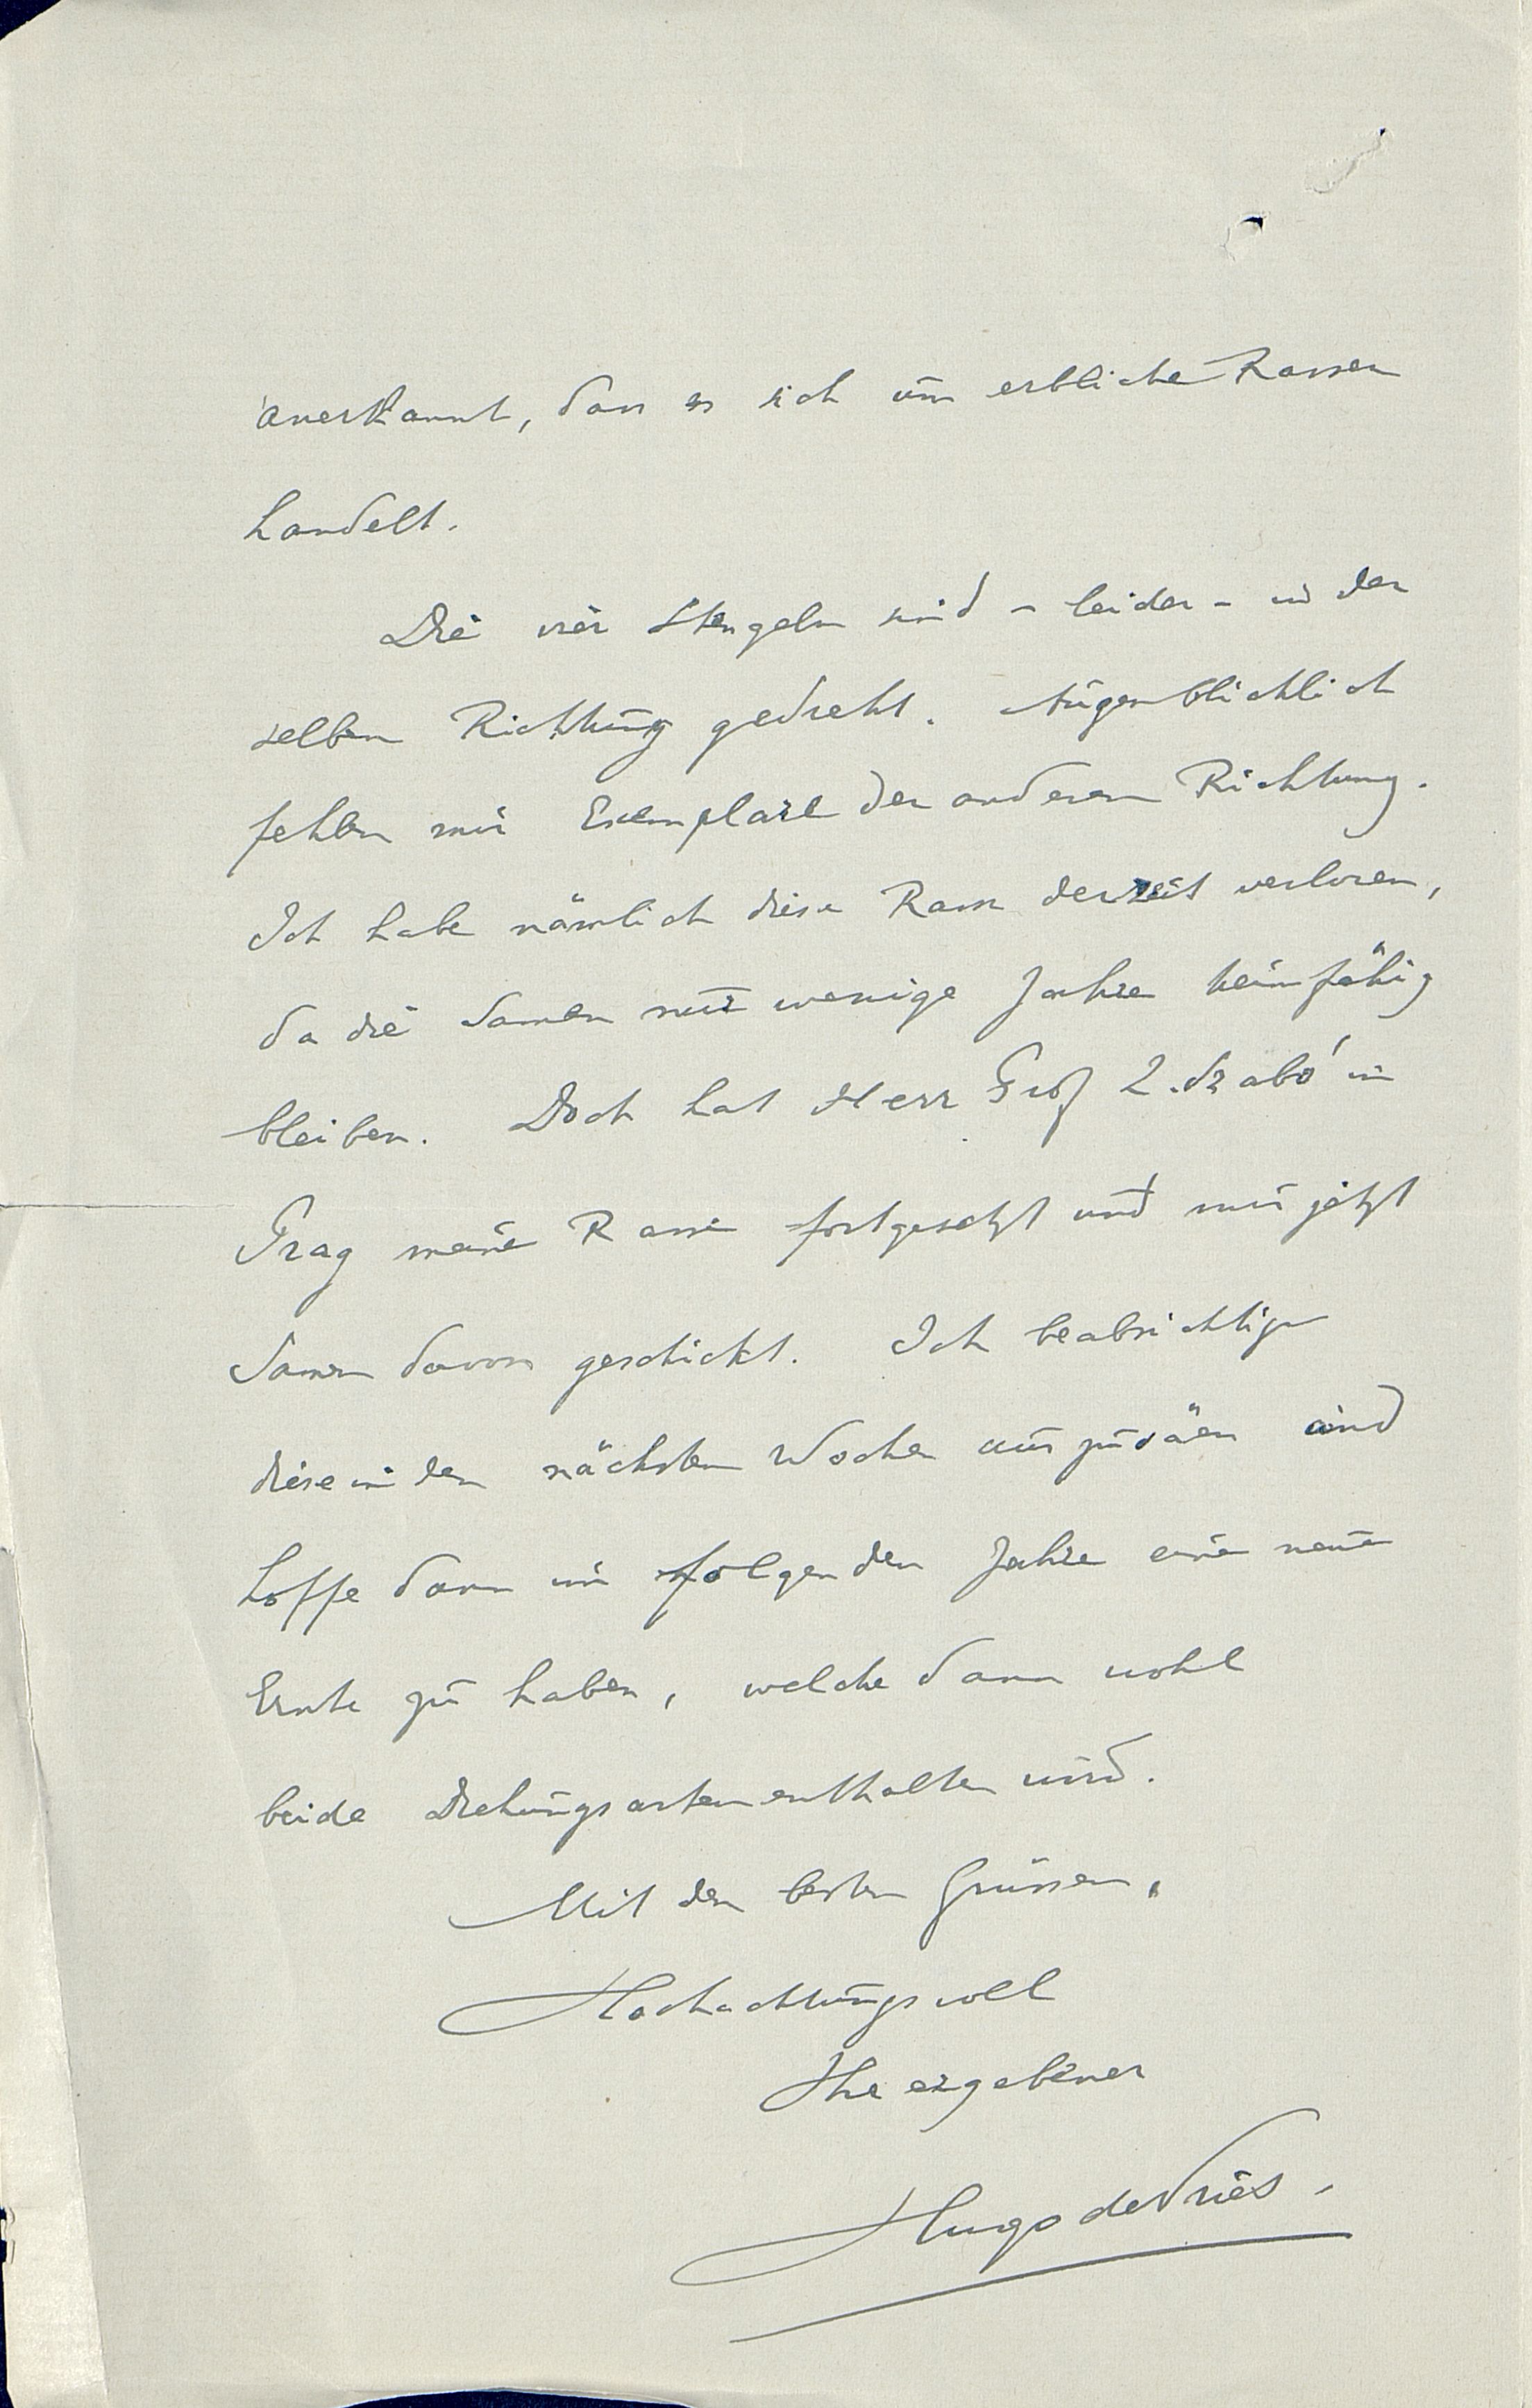 anerkannt, dass es sich um erbliche Rassen
handelt.
Die vier Stengeln sind – leider – in der
selben Richtung gedreht. Augenblicklich
fehlen mir Exemplare der anderen Richtung.
Ich habe nämlich diese Rasse derzeit verloren,
da die Samen nur wenige Jahre keimfähig
bleiben. Doch hat Herr Prof Z. Szabó in
Prag meine Rasse fortgesetzt und mir jetzt
Samen davon geschickt. Ich beabsichtige
diese in den nächsten Wochen auszusäen und
hoffe dann im folgenden Jahre eine neue
Ernte zu haben, welche dann wohl
beide Drehungsarten enthalten wird.
Mit den besten Grüssen,
Hochachtungsvoll
Ihr ergebener
Hugo de Vries.